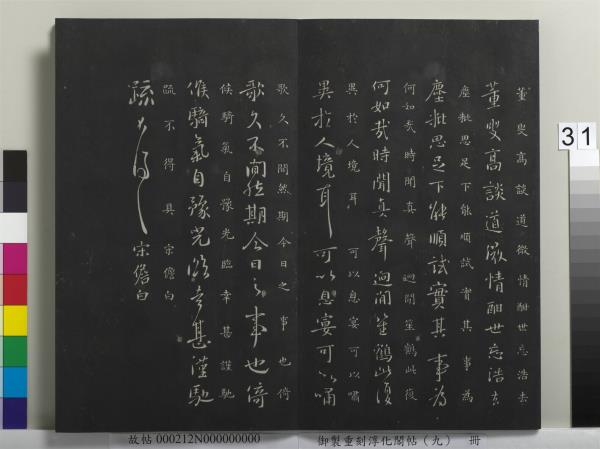 董叟高談道微情酣世忘浩去
董叟高談道微情酣世忘浩去
塵批思足下能順試實其事為
塵批思足下能順試實其事為
何如哉時聞真聲迴聞笙鶴此復
何如哉時聞真聲迴聞笙鶴此復
異於人境耳可以息宴可以嘯
異於人境耳可以息宴可以嘯
歌久不間然期今日之事也倚
歌久不間然期今日之事也倚
候騎氣自豫光臨幸甚謹馳
候騎氣自豫光臨幸甚謹馳
疏不得具宋儋白
疏不得具宋儋白
31
故帖000212N000000000 御製重刻淳化閣帖(九) 冊